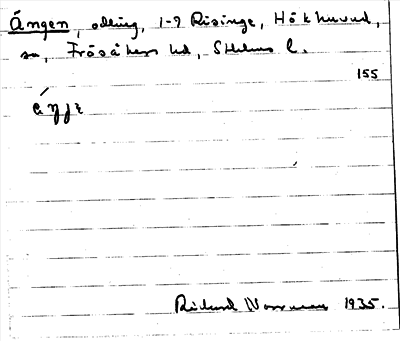 Ängen, odling, 1-2 Risinge, Hökhuvud,
sn, Frösåkers hd, Sthlms l.
155
Rickard Norrman 1935.